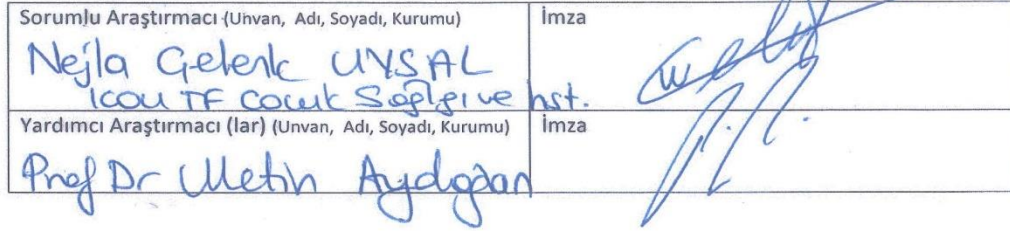 Sorumlu Araştırmacı (Unvan, Adı, Soyadı, Kurumu) İmza
Nejla Gelenk UYSAL
KOU TF Cocuk Sağlığı ve hst.
Yardımcı Araştırmacı (lar) (Unvan, Adı, Soyadı, Kurumu) İmza
Prof Dr Metin Aydoğan